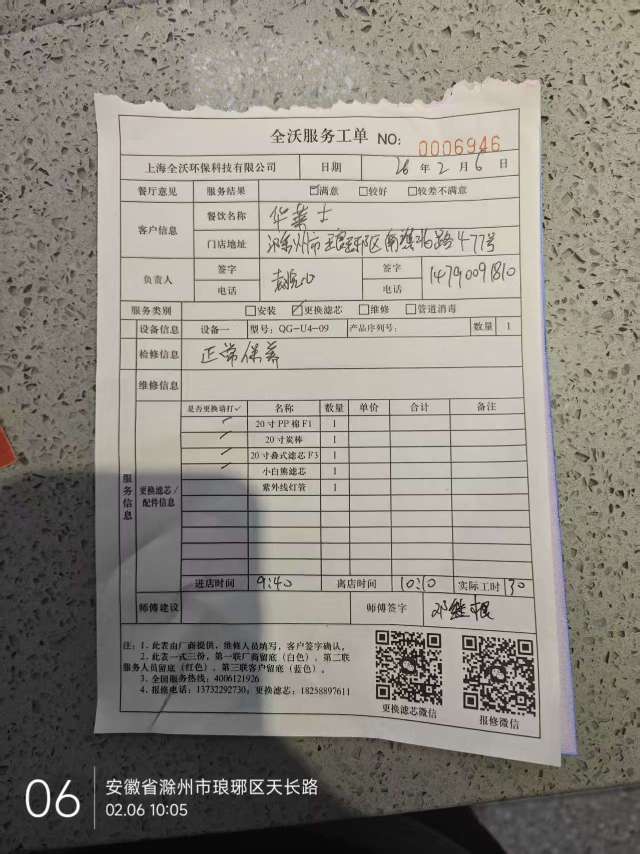 全沃服务工单 NO: 0006946
上海全沃环保科技有限公司 日期 26年2月6日
餐厅意见 服务结果 ☑满意 □较好 □较差不满意
客户信息 餐饮名称 华莱士
门店地址 滁州市琅琊区南谯北路477号
负责人 签字 签字
电话 电话 14790091810
服务类别 □安装 ☑更换滤芯 □维修 □管道消毒
设备信息 设备一 型号: QG-U4-09 产品序列号: 数量 1
检修信息 正常保养
维修信息
服务信息
更换滤芯/配件信息
是否更换请打✓ 名称 数量 单价 合计 备注
✓ 20寸PP棉F1 1
✓ 20寸炭棒 1
✓ 20寸叠式滤芯F3 1
✓ 小白熊滤芯 1
紫外线灯管 1
进店时间 9:40 离店时间 10:10 实际工时 30
师傅建议 师傅签字 邓继根
注: 1. 此表由厂商提供、维修人员填写,客户签字确认。
2. 此表一式三份,第一联厂商留底(白色)、第二联
服务人员留底(红色)、第三联客户留底(蓝色)。
3. 全国服务热线: 4006121926
4. 报修电话: 13732292730; 更换滤芯: 18258897611
更换滤芯微信
报修微信
06
安徽省滁州市琅琊区天长路
02.06 10:05